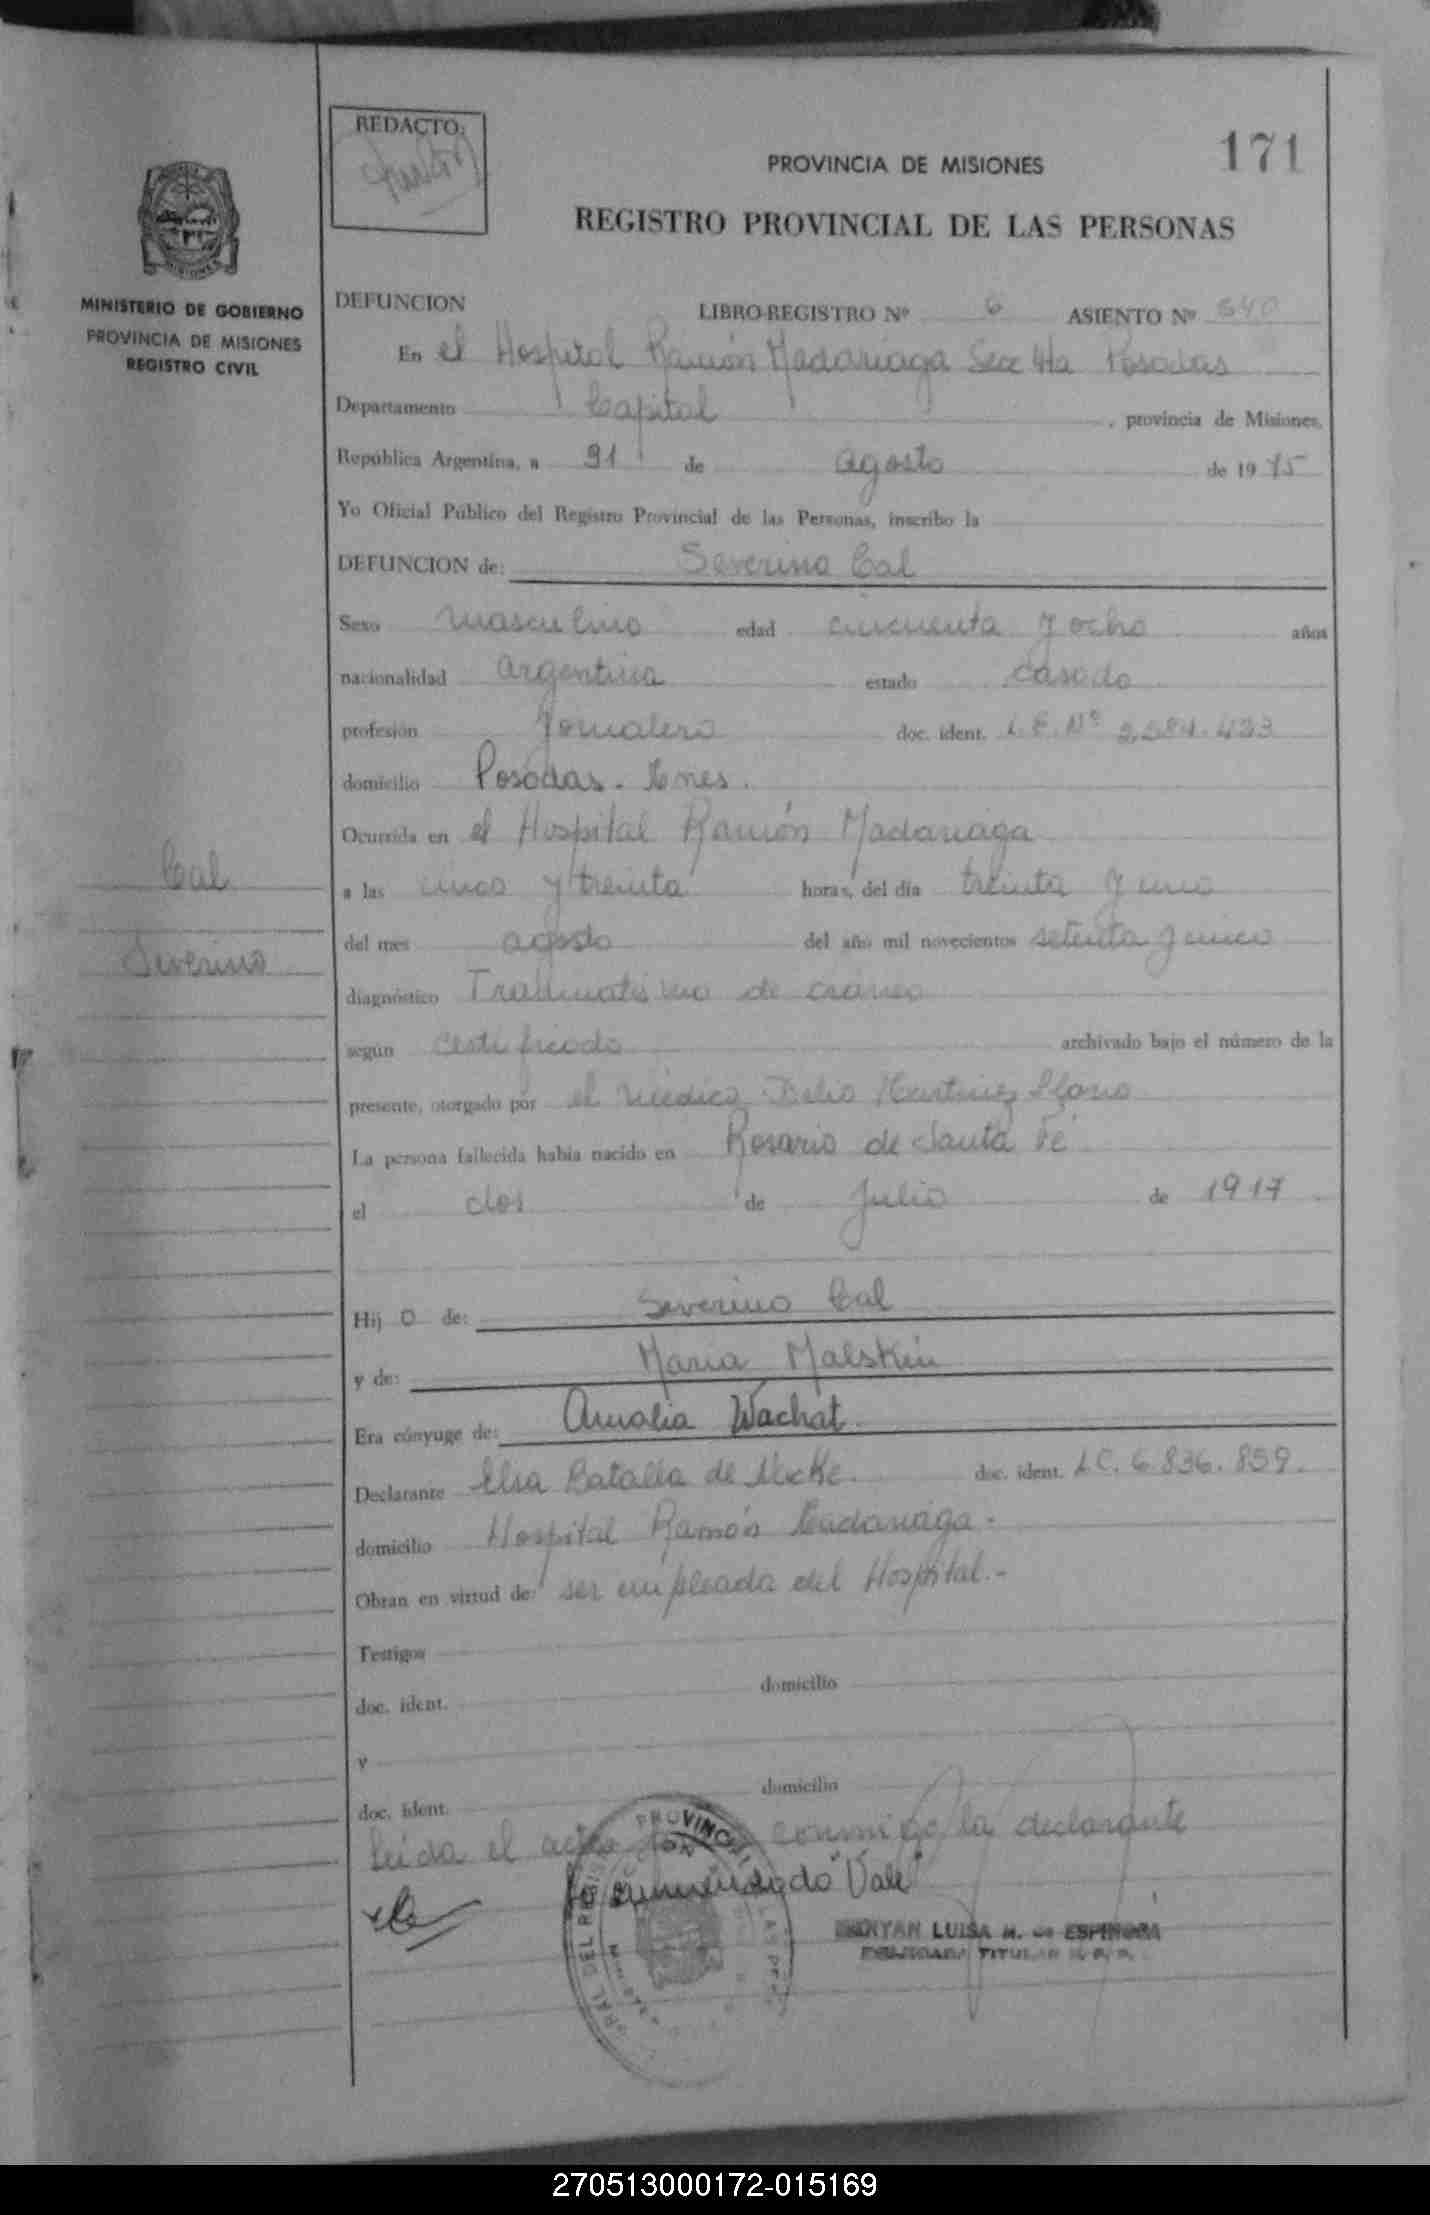 REDACTO:
171
PROVINCIA DE MISIONES
REGISTRO PROVINCIAL DE LAS PERSONAS
MISIONES
MINISTERIO DE GOBIERNO
PROVINCIA DE MISIONES
REGISTRO CIVIL
DEFUNCION LIBRO-REGISTRO Nº 6 ASIENTO Nº 540
En el Hospital Ramón Madariaga Secc 4ta Posadas
Departamento Capital , provincia de Misiones,
República Argentina, a 31 de agosto de 1975
Yo Oficial Público del Registro Provincial de las Personas, inscribo la
DEFUNCION de: Severino Cal
Sexo masculino edad cincuenta y ocho años
nacionalidad argentina estado casado
profesión Jornalero doc. ident. L.E.Nº 2.584.423
domicilio Posadas. Mnes.
Ocurrida en el Hospital Ramón Madariaga
a las cinco y treinta horas, del día treinta y uno
del mes agosto del año mil novecientos setenta y cinco
diagnóstico Traumatismo de cráneo
según certificado archivado bajo el número de la
presente, otorgado por el médico Delio Martinez
La persona fallecida había nacido en Rosario de Santa Fé
el dos de Julio de 1917
Hij o de: Severino Cal
y de: Maria Malskin
Era cónyuge de: Amalia Wachat
Declarante Elsa Batalla de doc. ident. L.C. 6.836.859.
domicilio Hospital Ramón Madariaga.
Obran en virtud de: ser empleada del Hospital.-
Testigos
doc. ident. domicilio
y
doc. ident. domicilio
leida el acta conmigo la declarante
enmendado "Vale"
LUISA M. de ESPINOZA
TITULAR
Cal
Severino
270513000172-015169